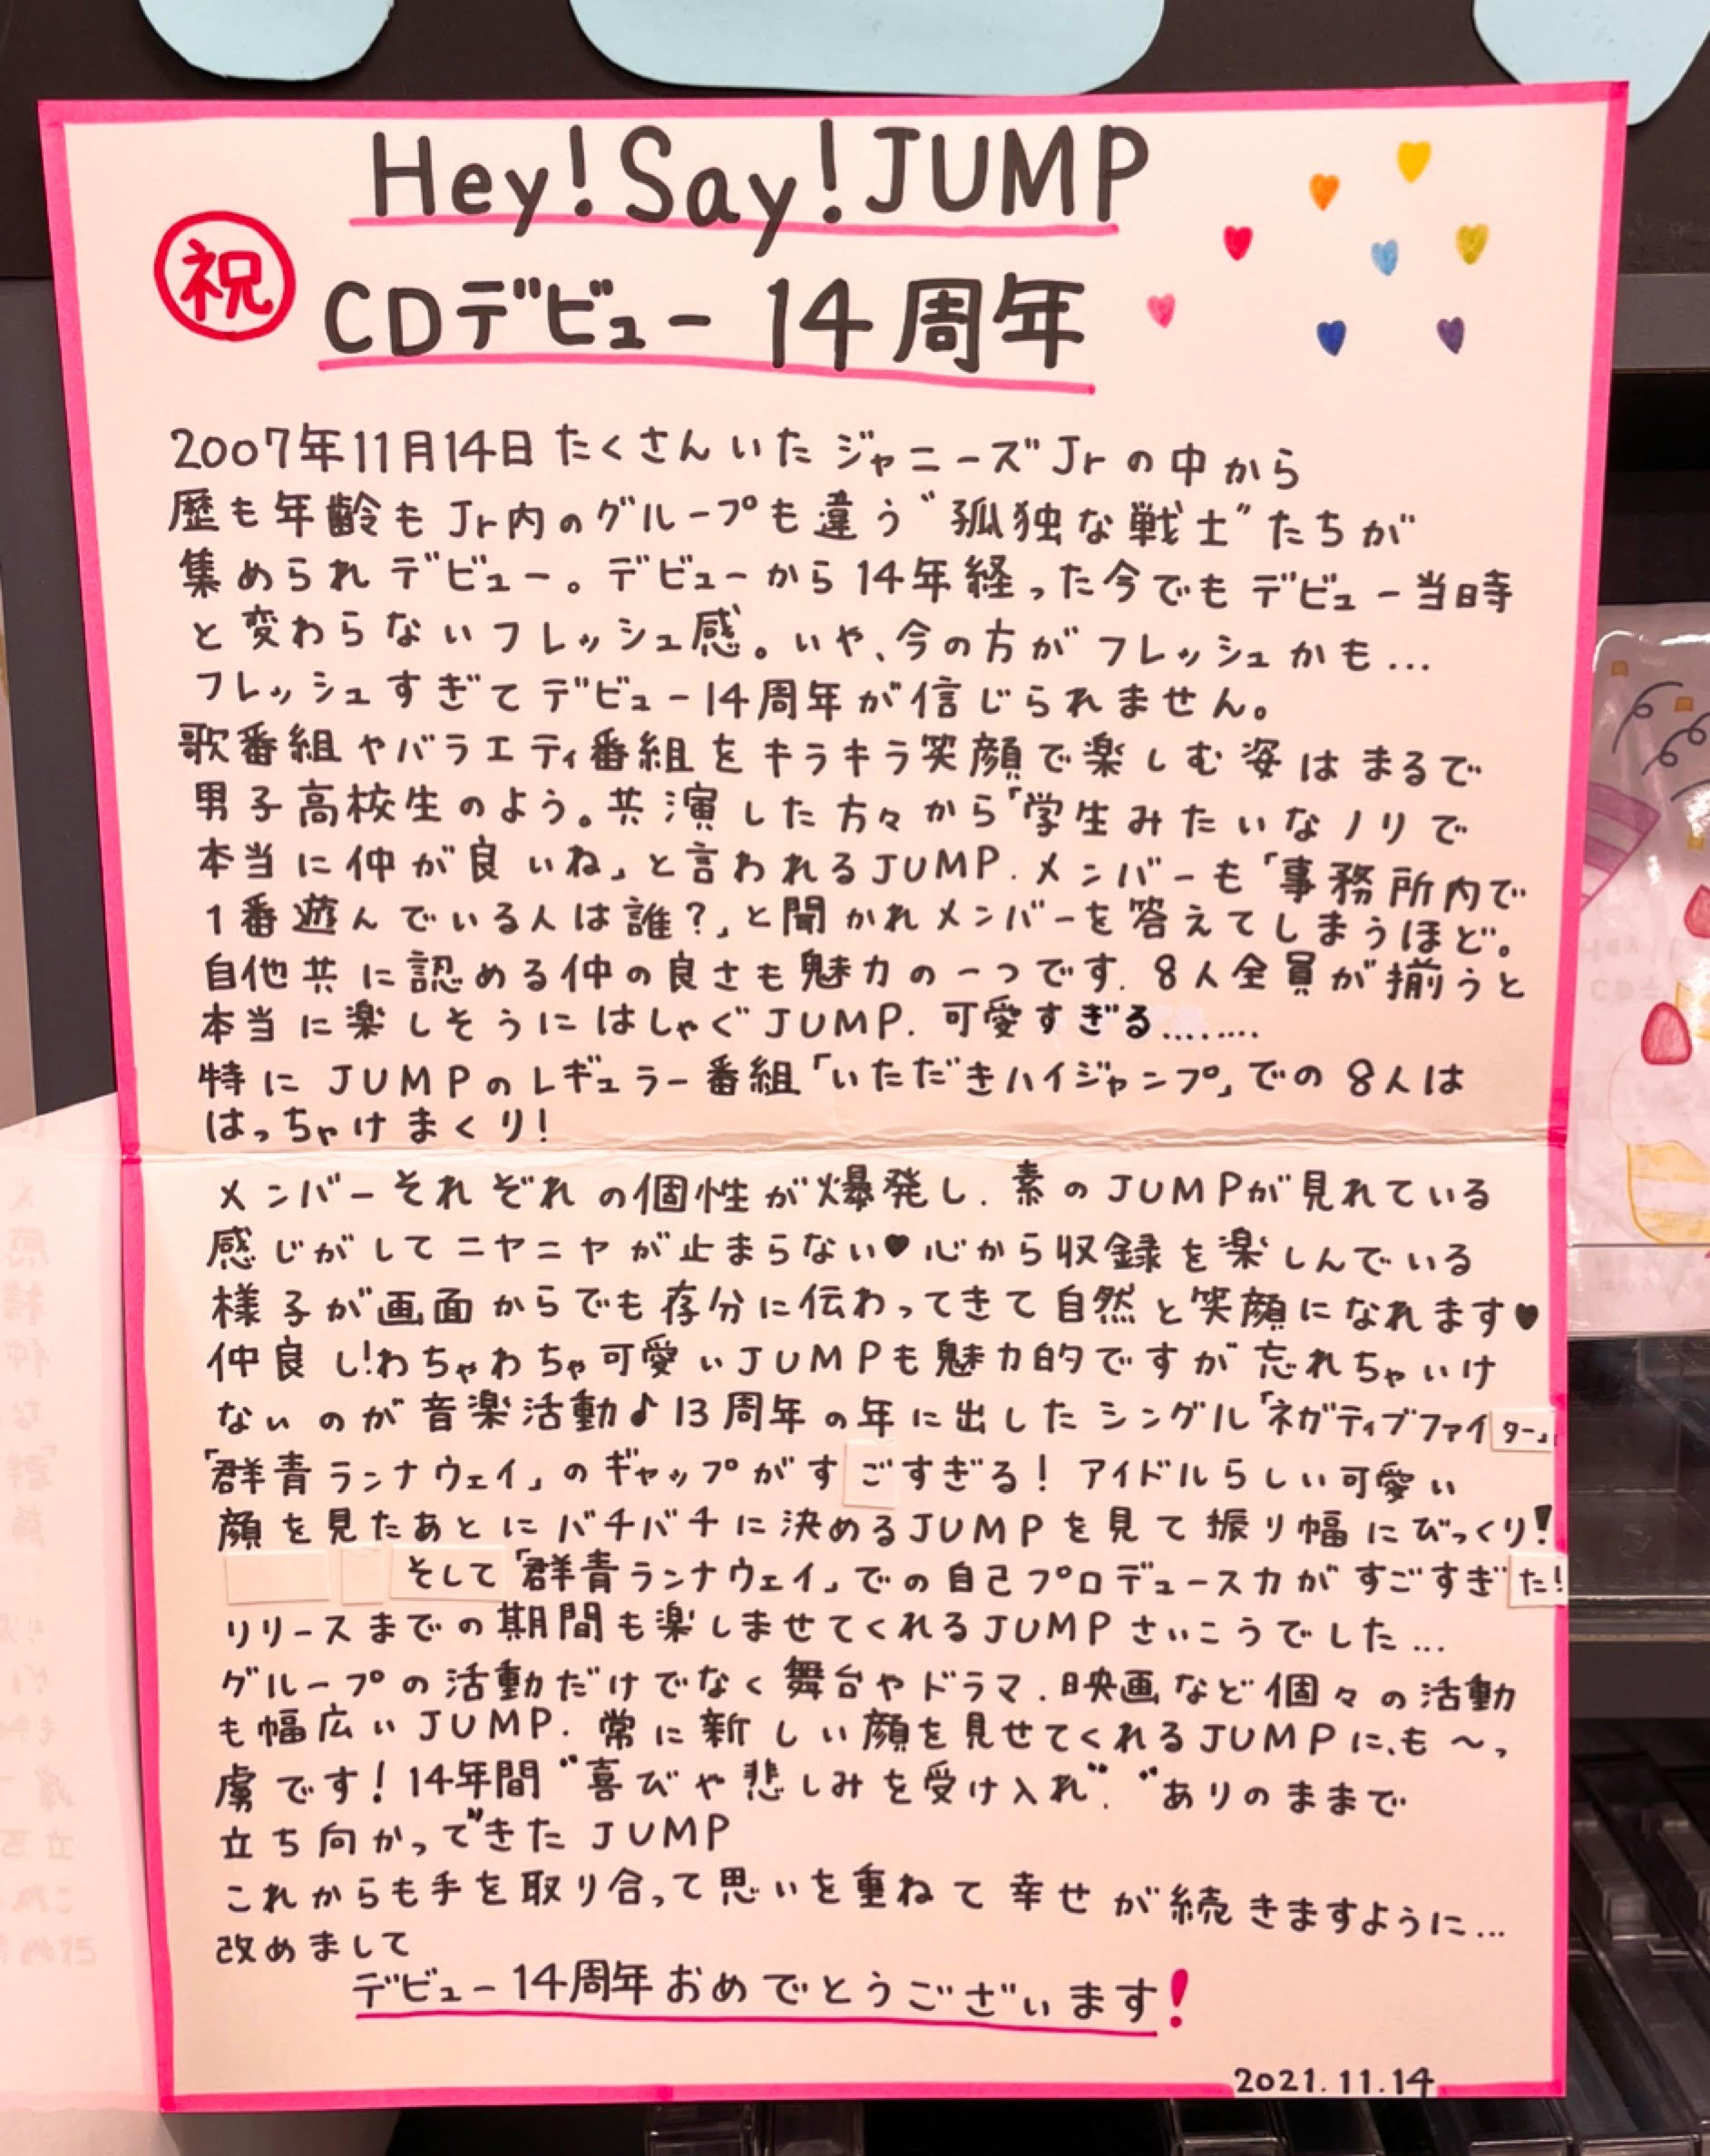 Hey!Say!JUMP
祝
CDデビュー 14周年
2007年11月14日 たくさんいた ジャニーズJrの中から
歴も年齢もJr内のグループも違う"孤独な戦士"たちが
集められデビュー。デビューから14年経った今でもデビュー当時
と変わらないフレッシュ感。いや、今の方がフレッシュかも...
フレッシュすぎてデビュー14周年が信じられません。
歌番組やバラエティ番組をキラキラ笑顔で楽しむ姿はまるで
男子高校生のよう。共演した方々から「学生みたいなノリで
本当に仲が良いね」と言われるJUMP.メンバーも「事務所内で
1番遊んでいる人は誰?」と聞かれメンバーを答えてしまうほど。
自他共に認める仲の良さも魅力の一つです.8人全員が揃うと
本当に楽しそうにはしゃぐJUMP.可愛すぎる........
特にJUMPのレギュラー番組「いただきハイジャンプ」での8人は
はっちゃけまくり!
メンバーそれぞれの個性が爆発し.素のJUMPが見れている
感じがしてニヤニヤが止まらない♥心から収録を楽しんでいる
様子が画面からでも存分に伝わってきて自然と笑顔になれます♥
仲良し!わちゃわちゃ可愛いJUMPも魅力的ですが忘れちゃいけ
ないのが音楽活動♪13周年の年に出したシングル「ネガティブファイター」
「群青ランナウェイ」のギャップがすごすぎる!アイドルらしい可愛い
顔を見たあとにバチバチに決めるJUMPを見て振り幅にびっくり!
そして「群青ランナウェイ」での自己プロデュース力がすごすぎた!
リリースまでの期間も楽しませてくれるJUMPさいこうでした...
グループの活動だけでなく舞台やドラマ.映画など個々の活動
も幅広いJUMP.常に新しい顔を見せてくれるJUMPに、も〜っ
虜です!14年間"喜びや悲しみを受け入れ"."ありのままで
立ち向かって"きたJUMP
これからも手を取り合って思いを重ねて幸せが続きますように...
改めまして
デビュー14周年おめでとうございます!
2021.11.14